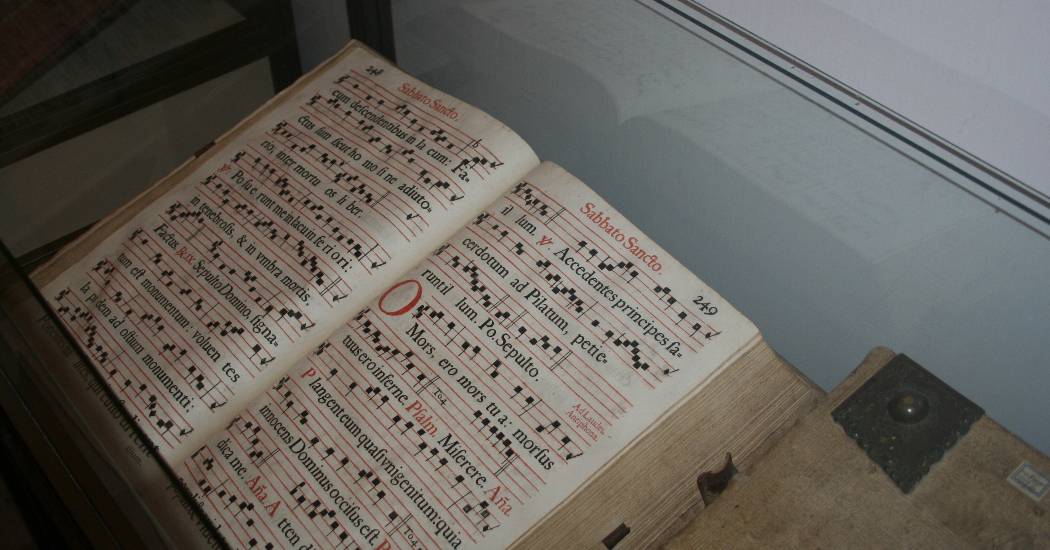 248
Sabbato Sancto.
cum descendentibus in la cum: Fa-
ctus sum sicut ho mo si ne adiuto-
rio, inter mortu os li ber.
℣. Posue runt me in lacum in fe ri ori:
in tenebrosis, & in vmbra mortis.
Factus. Resp. Sepulto Domino, signa-
tum est monumentum: voluen tes
la pidem ad ostium monumenti:
249
Sabbato Sancto.
il lum. ℣. Accedentes principes sa-
cerdotum ad Pilatum, petie-
runt il lum. Po. Sepulto.
Ad Laudes
Antiphona.
O Mors, ero mors tu a: morsus
tuus ero inferne. Psalm. Miserere. Aña.
Plangent eum quasi vnigenitum: quia
innocens Dominus occisus est.
dica me. Aña. A tten